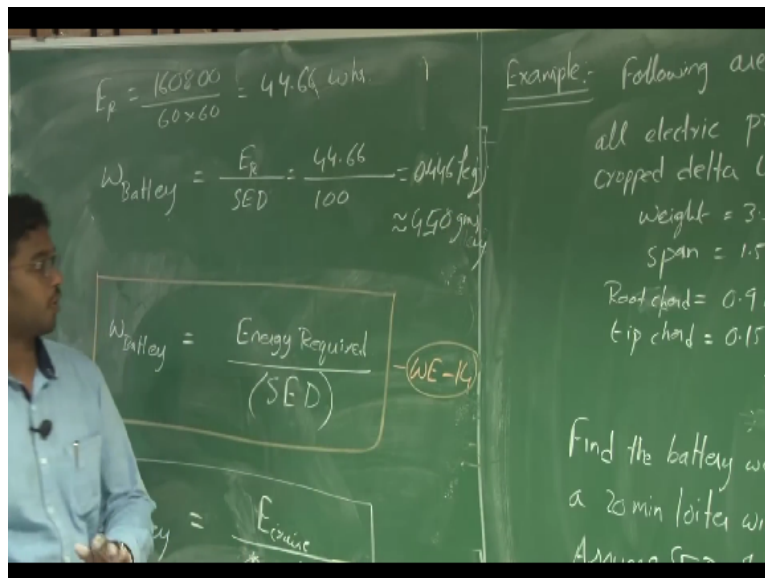 E_R = 160800 / 60×60 = 44.66 whr
W_Battey = E_R / SED = 44.66 / 100 = 0.446 kg
≈ 450 gm
W_Battey = Energy Required / (SED) - WE-14
= E_cruise
Example:- Following are
all electric
cropped delta
weight = 3.
span = 1.5
Root chord = 0.9
tip chord = 0.15
Find the battery
a 20 min loiter